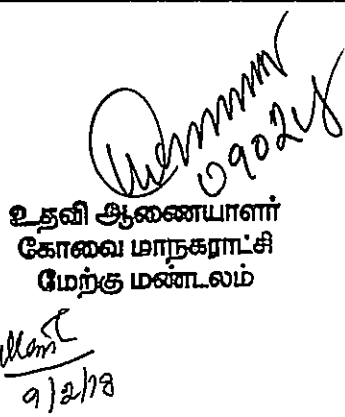 உதவி ஆணையாளர்
கோவை மாநகராட்சி
மேற்கு மண்டலம்
9/2/18